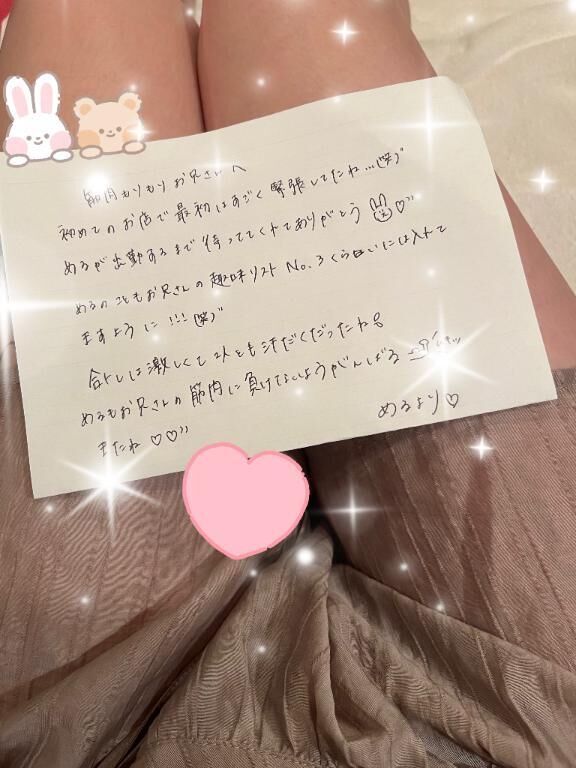 筋肉もりもりお兄さんへ
初めてのお店で最初はすごく緊張してたね...(笑)
めるが出勤するまで待っててくれてありがとう♡
めるのこともお兄さんの趣味リストNo.3くらいには入れて
ますように!!!(笑)
は激しくて2人とも汗だくだったね
めるもお兄さんの筋肉に負けないようがんばる
またね♡♡
めるより♡